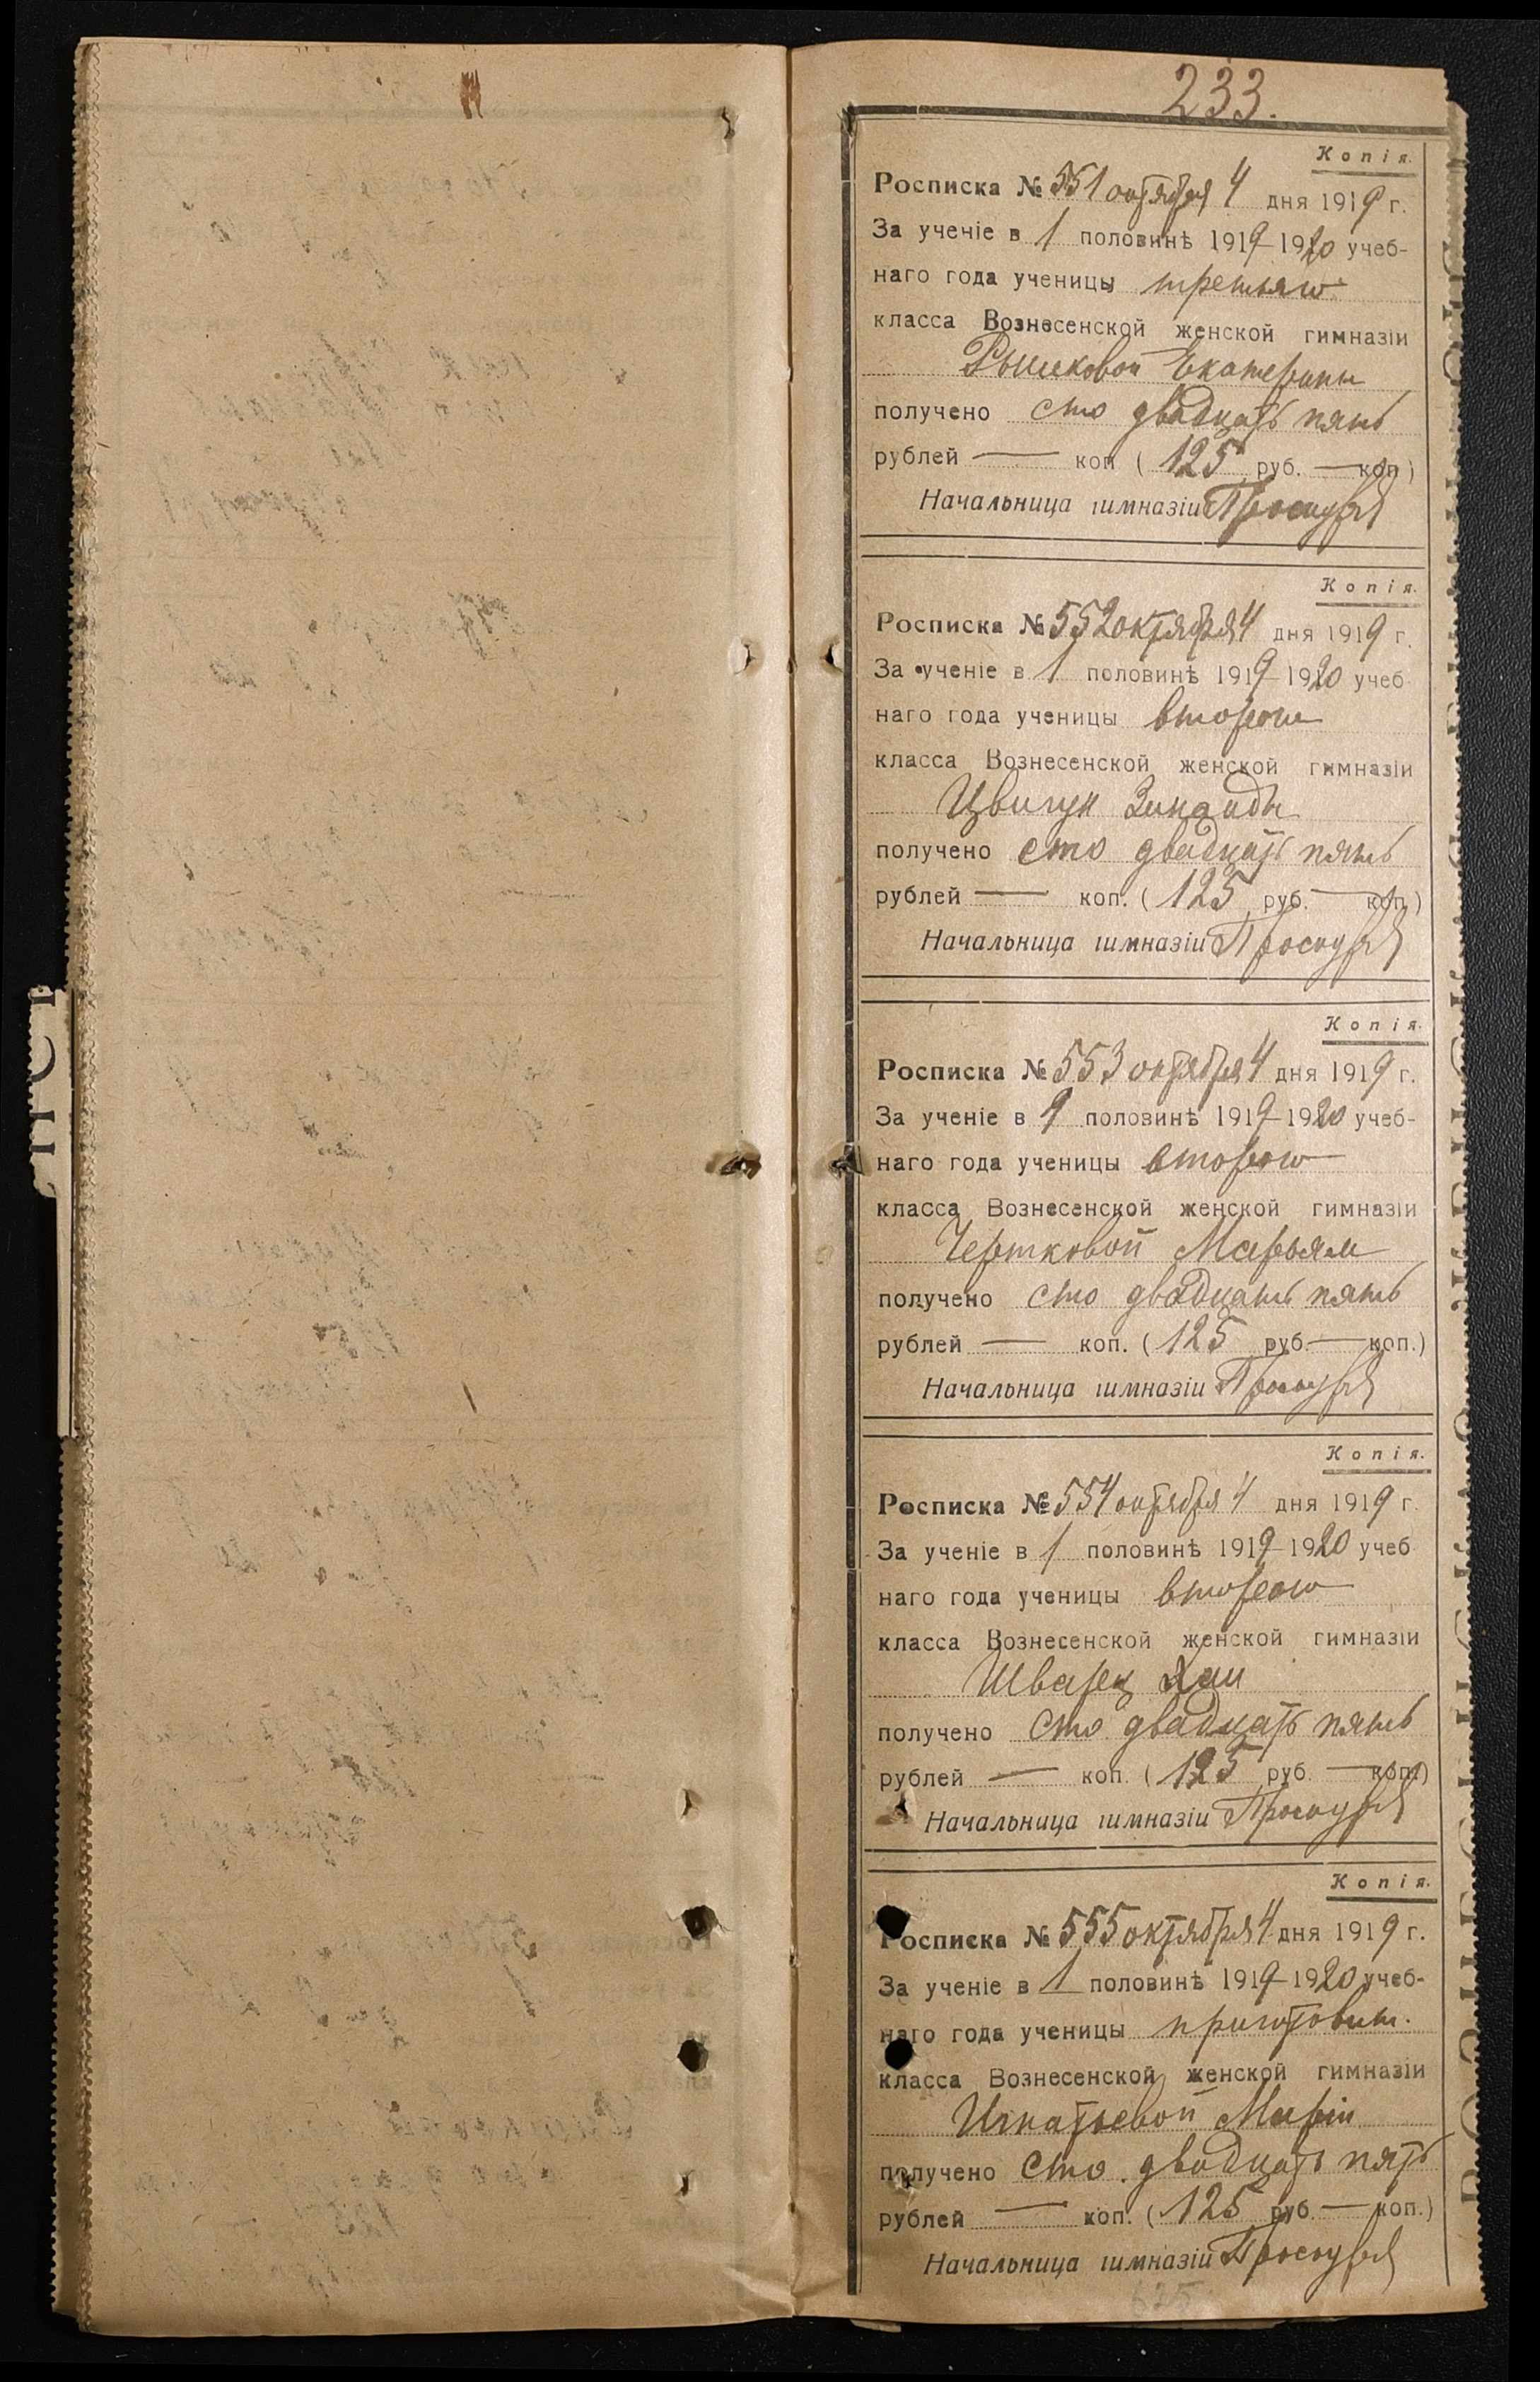 233.
Копія.
Росписка № 551 октября 4 дня 1919 г.
За ученіе в 1 половинѣ 1919-1920 учеб-
наго года ученицы третьяго
класса Вознесенской женской гимназіи
Екатерины
получено сто двадцать пять
рублей — коп. (125 руб. — коп.)
Начальница гимназіи
Копія.
Росписка № 552 октября 4 дня 1919 г.
За ученіе в 1 половинѣ 1919-1920 учеб-
наго года ученицы
класса Вознесенской женской гимназіи
Цвигун Зинаиды
получено сто двадцать пять
рублей — коп. (125 руб. — коп.)
Начальница гимназіи
Копія.
Росписка № 553 октября 4 дня 1919 г.
За ученіе в половинѣ 1919-1920 учеб-
наго года ученицы второго
класса Вознесенской женской гимназіи
Чертковой Марьям
получено сто двадцать пять
рублей — коп. (125 руб. — коп.)
Начальница гимназіи
Копія.
Росписка № 554 октября 4 дня 1919 г.
За ученіе в 1 половинѣ 1919-1920 учеб
наго года ученицы второго
класса Вознесенской женской гимназіи
Шварц Хаи
получено сто двадцать пять
рублей — коп. (125 руб. — коп.)
Начальница гимназіи
Копія.
Росписка № 555 октября 4 дня 1919 г.
За ученіе в 1 половинѣ 1919-1920 учеб-
наго года ученицы приготовит.
класса Вознесенской женской гимназіи
Игнатьевой Маріи
получено сто двадцать пять
рублей — коп. (125 руб. — коп.)
Начальница гимназіи
625